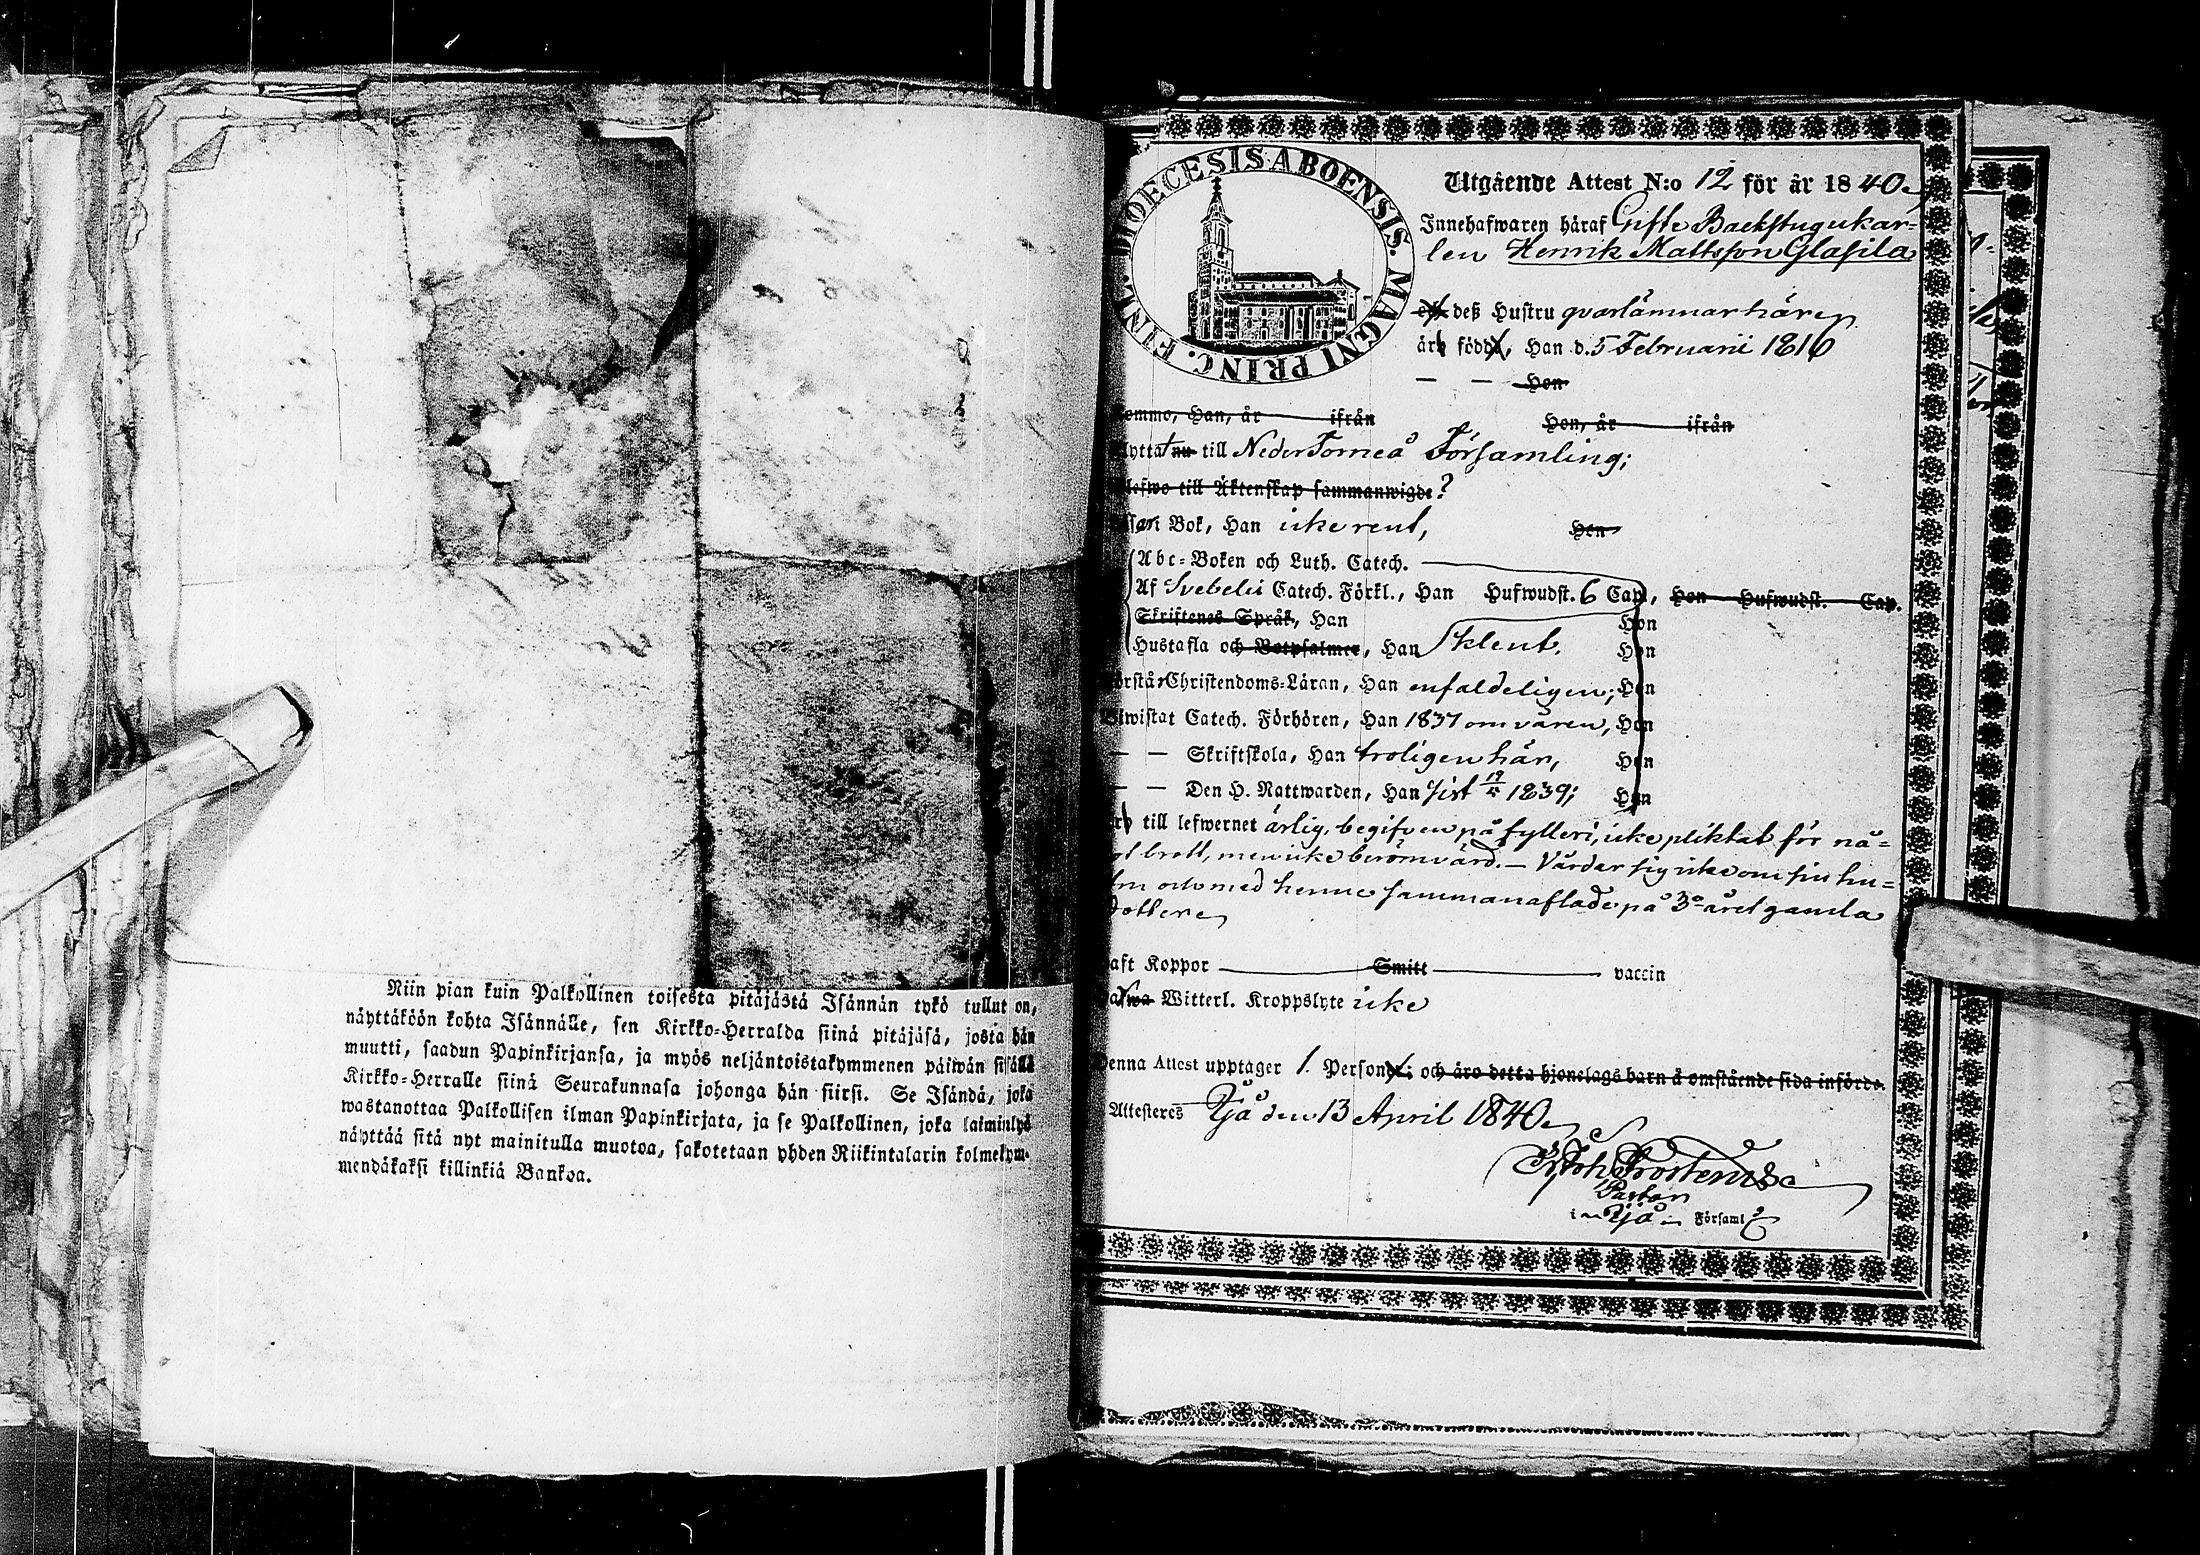 Niin pian kuin Palkollinen toisesta pitäjästä Isännän tykö tullut on,
näyttäköön kohta Isännälle, sen Kirkko-Herralda siinä pitäjäsä, josta hän
muutti, saadun Papinkirjansa, ja myös neljäntoistakymmenen päiwän sisällä
Kirkko-Herralle siinä Seurakunnasa johonga hän siirsi. Se Isändä, joka
wastanottaa Palkollisen ilman Papinkirjata, ja se Palkollinen, joka laiminlyö
näyttää sitä nyt mainitulla muotoa, sakotetaan yhden Riikintalarin kolmekym-
mendäkaksi killinkiä Bankoa.
DIOECESIS ABOENSIS. MAGNI PRINC. FINL.
Utgående Attest N:o 12 för år 1840.
Innehafwaren häraf Gifte Backstugukar-
len Henrik Mattsson Glasila
deß Hustru qvarlämnar här
är född, Han d. 5 Februarii 1816
— — Hon
kommo, Han, år ifrån Hon, år ifrån
flyttat nu till Neder Torneå Församling;
blefwo till Äktenskap sammanwigde?
läser i Bok, Han icke rent, Hon
Abc-Boken och Luth. Catech.
Af Svebelii Catech. Förkl., Han Hufwudst. 6 Cap., Hon Hufwudst. Cap.
Skriftenes Språk, Han Hon
Hustafla och Botpsalmer, Han klent. Hon
förstår Christendoms-Läran, Han enfaldeligen; Hon
Biwistat Catech. Förhören, Han 1837 om våren, Hon
— — Skriftskola, Han troligen här, Hon
— — Den H. Nattwarden, Han sist 19/4 1839; Hon
är till lefwernet ärlig, begifven på fylleri, icke pliktat för nå-
got brott, men icke berömvärd. — Vårdar sig icke om sin hu-
stru och med henne sammanaflade på 3e året gamla
dotter
haft Koppor Smitt vaccin
hafwa Witterl. Kroppslyte icke
Denna Attest upptager 1. Person; och äro detta hjonelags barn å omstående sida införde.
Attesteres Ijå den 13 April 1840.
Joh. Frosterus
Pastor
i Ijå Församl